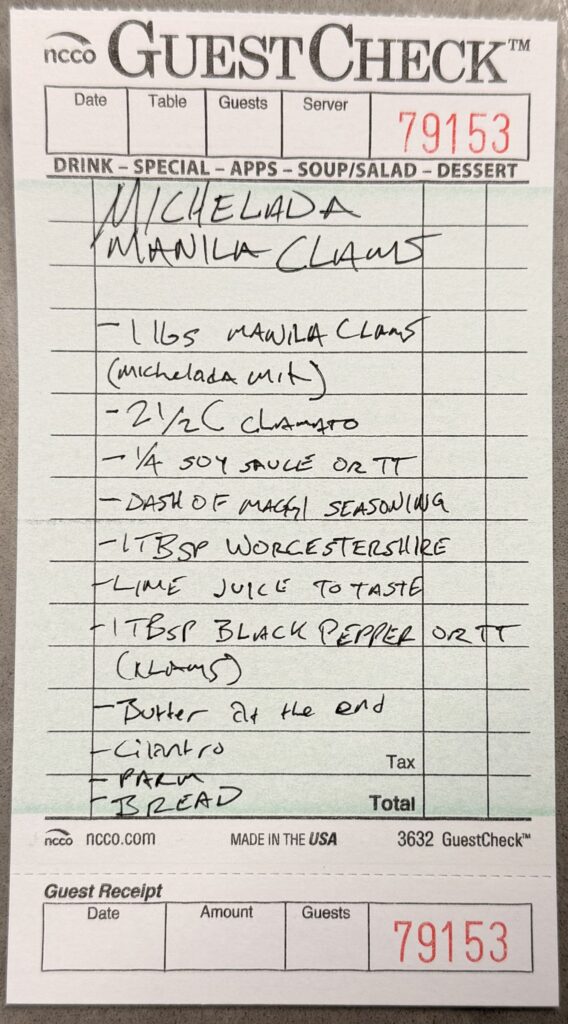 ncco GUESTCHECK™
Date Table Guests Server 79153
DRINK – SPECIAL – APPS – SOUP/SALAD – DESSERT
MICHELADA
MANILA CLAMS
- 1 lbs MANILA CLAMS
(Michelada Mix)
- 2 1/2 C CLAMATO
- 1/4 SOY SAUCE OR TT
- DASH OF MAGGI SEASONING
- 1 TBSP WORCESTERSHIRE
- LIME JUICE TO TASTE
- 1 TBSP BLACK PEPPER OR TT
(KLAMS)
- Butter at the end
- Cilantro
Tax
- PARM
- BREAD
Total
ncco ncco.com MADE IN THE USA 3632 GuestCheck™
Guest Receipt
Date Amount Guests 79153